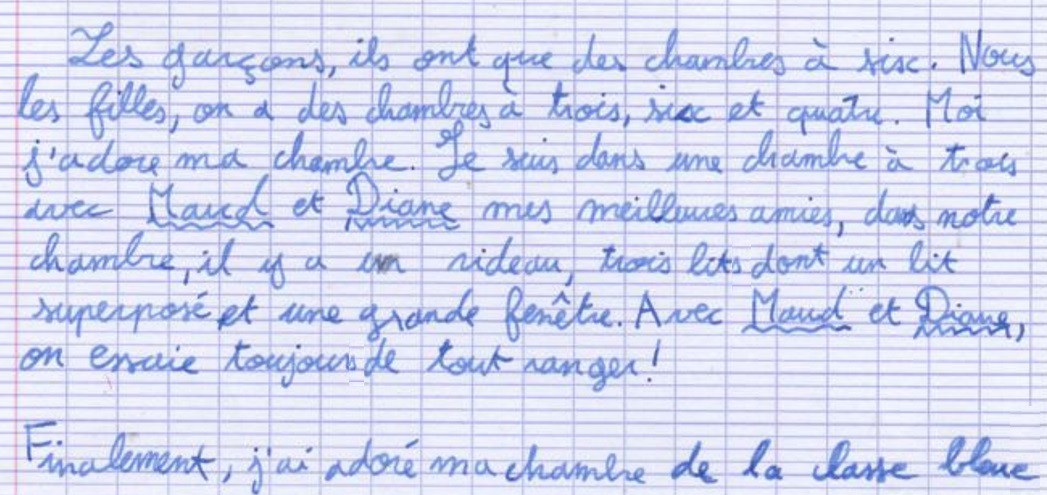 Les garçons, ils ont que des chambres à six. Nous
les filles, on a des chambres à trois, six et quatre. Moi
j'adore ma chambre. Je suis dans une chambre à trois
avec Maud et Diane mes meilleures amies, dans notre
chambre, il y a un rideau, trois lits dont un lit
superposé et une grande fenêtre. Avec Maud et Diane,
on essaie toujours de tout ranger!
Finalement, j'ai adoré ma chambre de la classe bleue